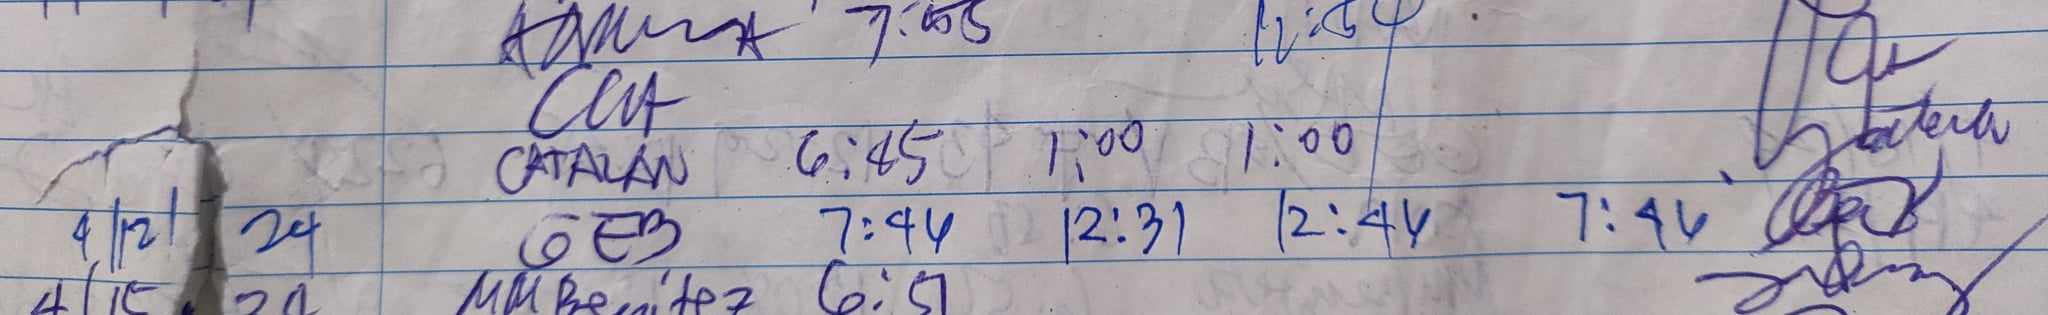 7:55 12:54
CATALAN 6:45 1:00 1:00
4/12/ 24 GEB 7:44 12:31 12:44 7:46
4/15 24 MMBenitez 6:51